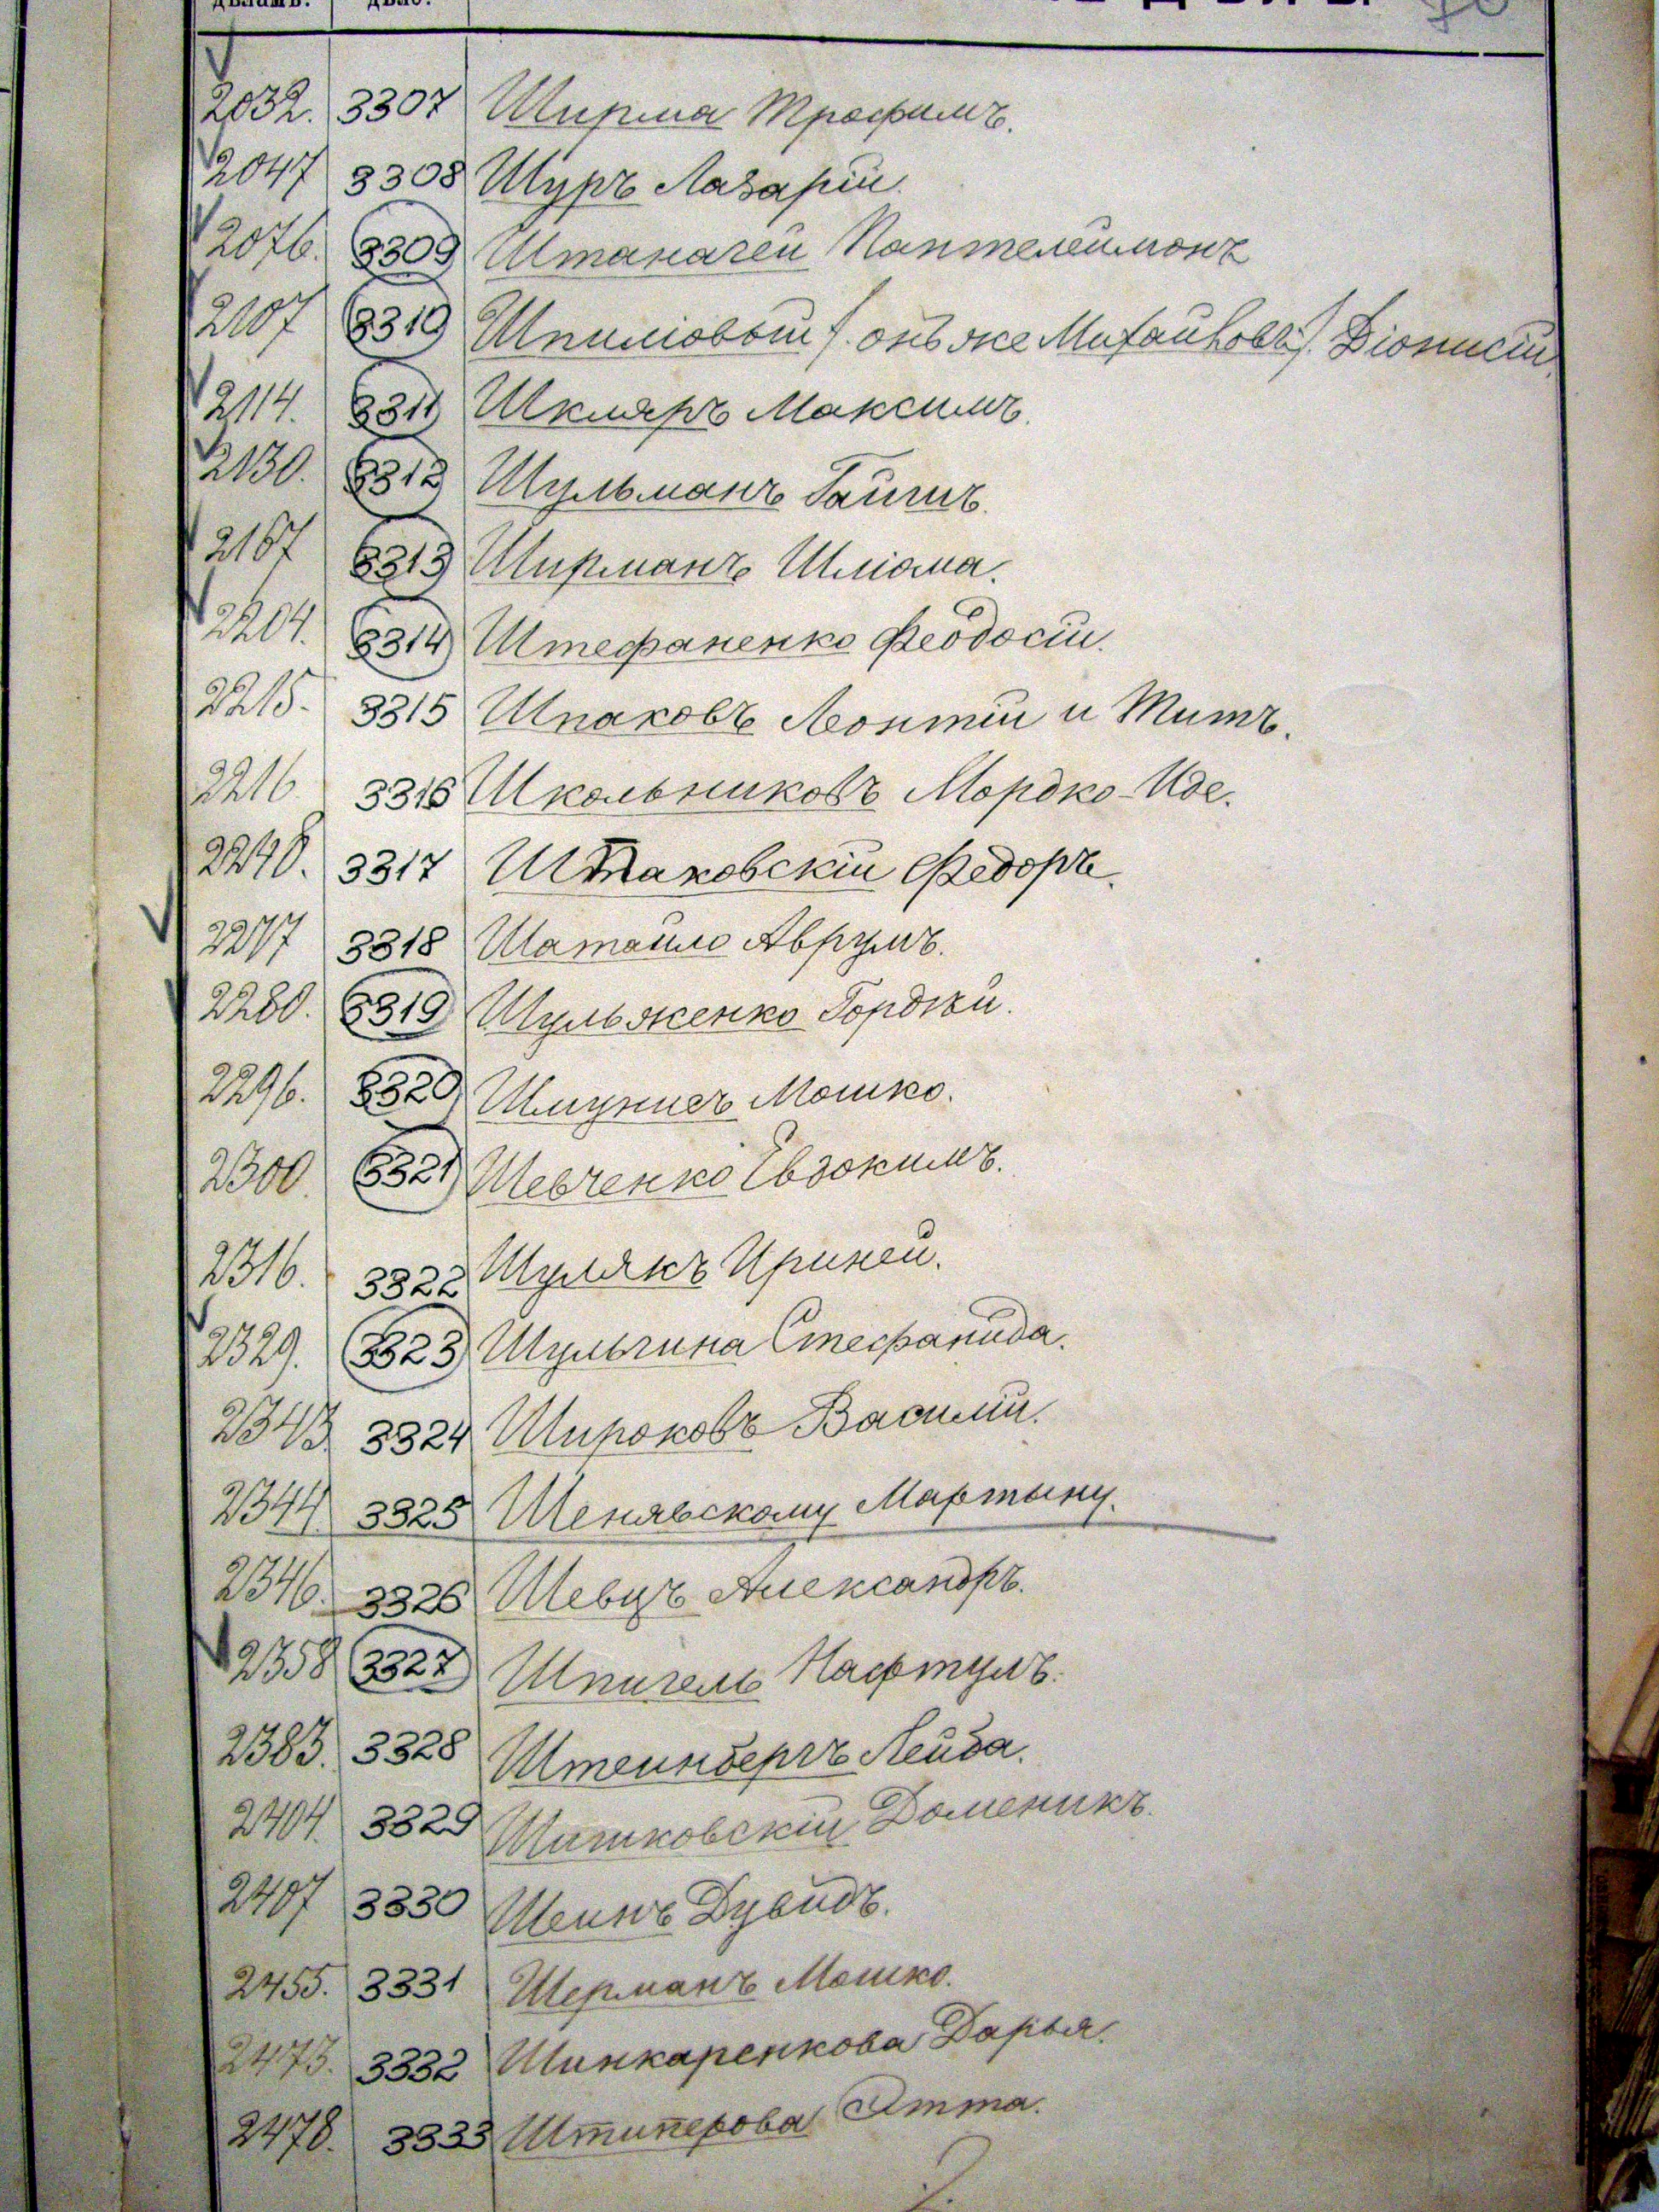 дѣламъ. дѣло.
2032. 3307 Ширма Трофимъ.
2047 3308 Шуръ Лазарій.
2076. 3309 Штаначей Пантелеймонъ
2107 3310 Шпиліовый /. онъ же Михайловъ /. Діонисій.
2114. 3311 Шкляръ Максимъ.
2130. 3312 Шульманъ
2167 3313 Ширманъ Шліома.
2204. 3314 Штефаненко Феодосій.
2215. 3315 Шпаковъ Леонтій и Титъ.
2216 3316 Школьниковъ Мордко-Иде.
2248. 3317 Штаковскій Федоръ.
2277 3318 Шатайло Аврумъ.
2280. 3319 Шульженко Гордѣй.
2296. 3320 Шмунисъ Мошко.
2300. 3321 Шевченко Евдокимъ.
2316. 3322 Шулякъ Ириней.
2329. 3323 Шульгина Стефанида.
2343. 3324 Широковъ Василій.
2344. 3325 Шенявскому Мартыну.
2346. 3326 Шевцъ Александръ.
2358 3327 Шпигель Нафтулъ.
2383. 3328 Штейнбергъ Лейба.
2404. 3329 Шишковскій Доменикъ.
2407 3330 Шейнъ Дувидъ.
2455. 3331 Шерманъ Мошко.
2473. 3332 Шинкаренкова Дарья.
2478. 3333 Штиперова